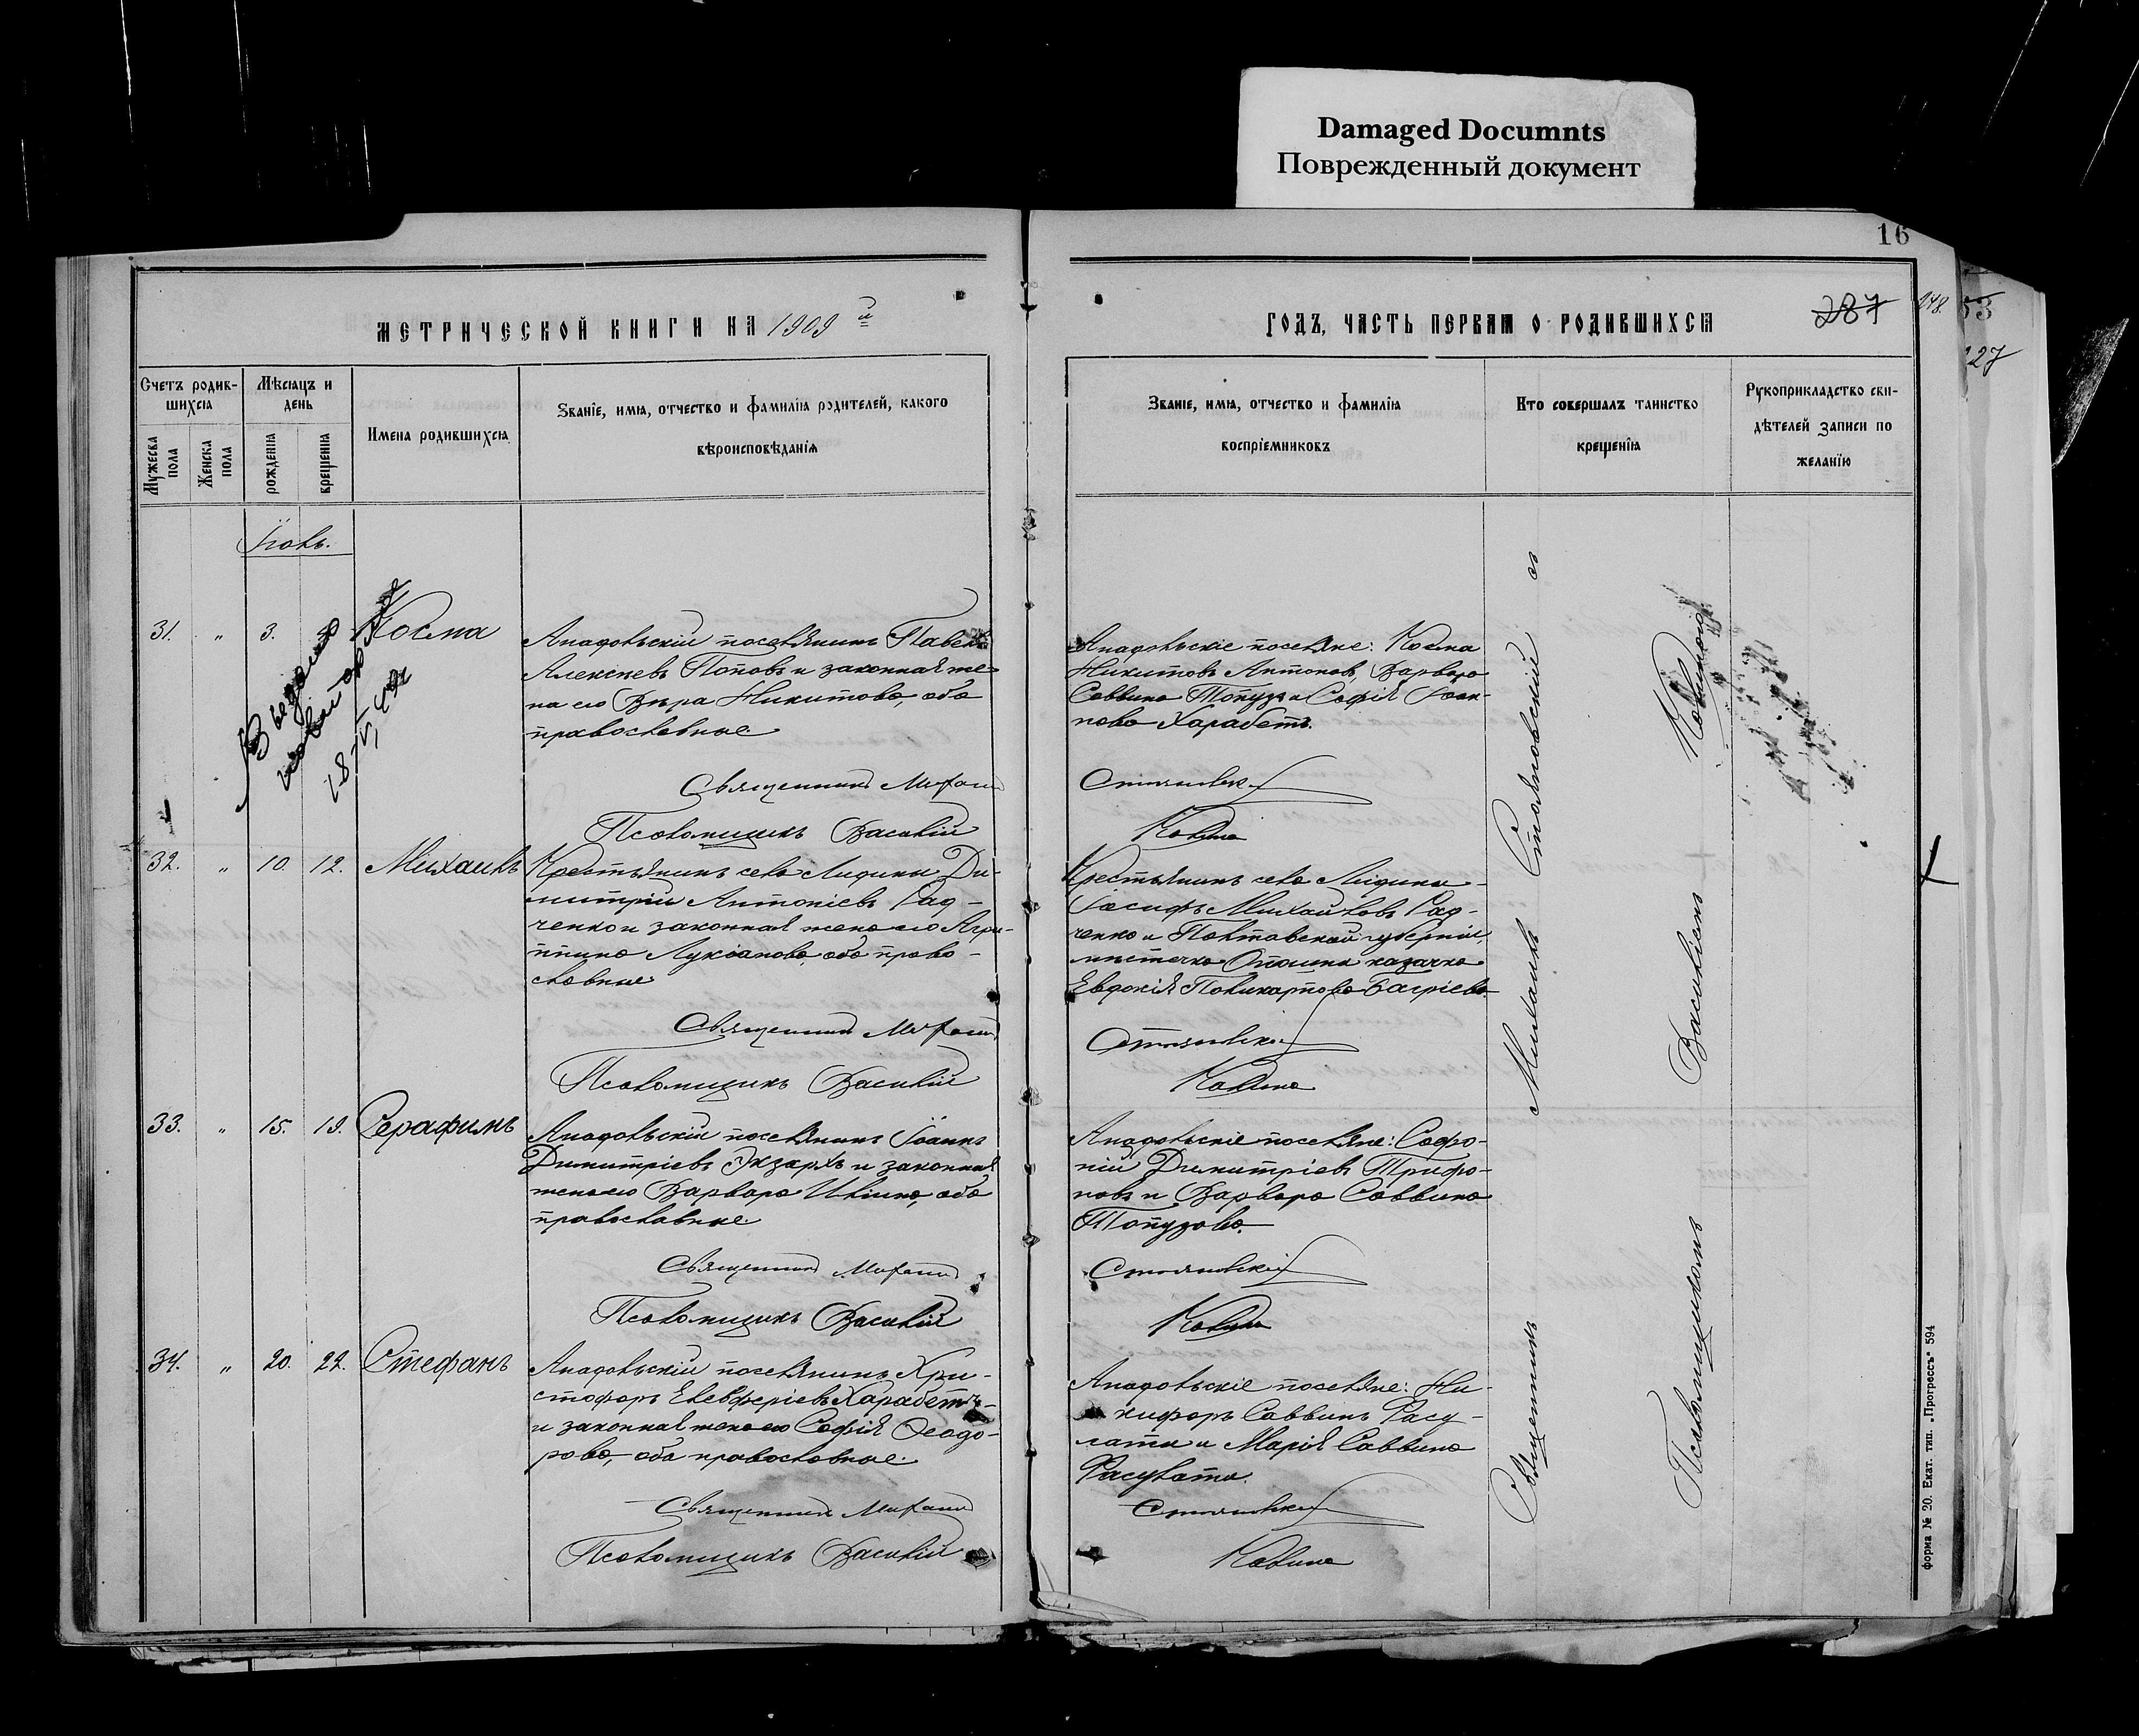 Damaged Documnts
Поврежденный документ
16
МЕТРИЧЕСКОЙ КНИГИ НА 1909 й
ГОДЪ, ЧАСТЬ ПЕРВАЯ О РОДИВШИХСЯ
287
248.
53
27
Счетъ родив-
шихся
Мѣсяцъ и
день
Мужеска
пола
Женска
пола
рожденія
крещенія
Имена родившихся
Званіе, имя, отчество и фамилія родителей, какого
вѣроисповѣданія
Званіе, имя, отчество и фамилія
воспріемниковъ
Кто совершалъ таинство
крещенія
Рукоприкладство сви-
дѣтелей записи по
желанію
Іюнь.
31. „ 3. Косма
Анадольскій поселянинъ Павелъ
Алексѣевъ Поповъ и законная же-
на его Вѣра Никитова, оба
православные.
Священникъ Михаилъ
Псаломщикъ Василій
Анадольскіе поселяне: Косма
Никитовъ Антоновъ, Варвара
Саввина Топузъ и Софія Іоан-
нова Харабетъ.
Стояновскій
Калина
32. „ 10. 12. Михаилъ
Крестьянинъ села Лидина Ди-
митрій Антоніевъ Рад-
ченко и законная жена его Агри-
ппина Лукіанова, оба право-
славные
Священникъ Михаилъ
Псаломщикъ Василій
Крестьянинъ села Лидина
Іосифъ Михайловъ Рад-
ченко и Полтавской губерніи,
мѣстечка казачка
Евдокія Поликарпова Багріева.
Стояновскій
Калина
33. „ 15. 19. Серафимъ
Анадольскій поселянинъ Іоаннъ
Димитріевъ Экзархъ и законная
жена его Варвара Иліина, оба
православные.
Священникъ Михаилъ
Псаломщикъ Василій
Анадольскіе поселяне: Софро-
ній Димитріевъ Трифо-
новъ и Варвара Саввина
Топузова.
Стояновскій
Калина
34. „ 20. 22. Стефанъ
Анадольскій поселянинъ Хри-
стофоръ Елевферіевъ Харабетъ
и законная жена его Софія Ѳеодо-
рова, оба православные.
Священникъ Михаилъ
Псаломщикъ Василій
Анадольскіе поселяне: Ни-
кифоръ Саввинъ Расу-
лати и Марія Саввина
Расулати.
Стояновскій
Калина
Священникъ Михаилъ Стояновскій съ
Псаломщикомъ Василіемъ Калиною
форма № 20. Екат. тип. „Прогрессъ" 594